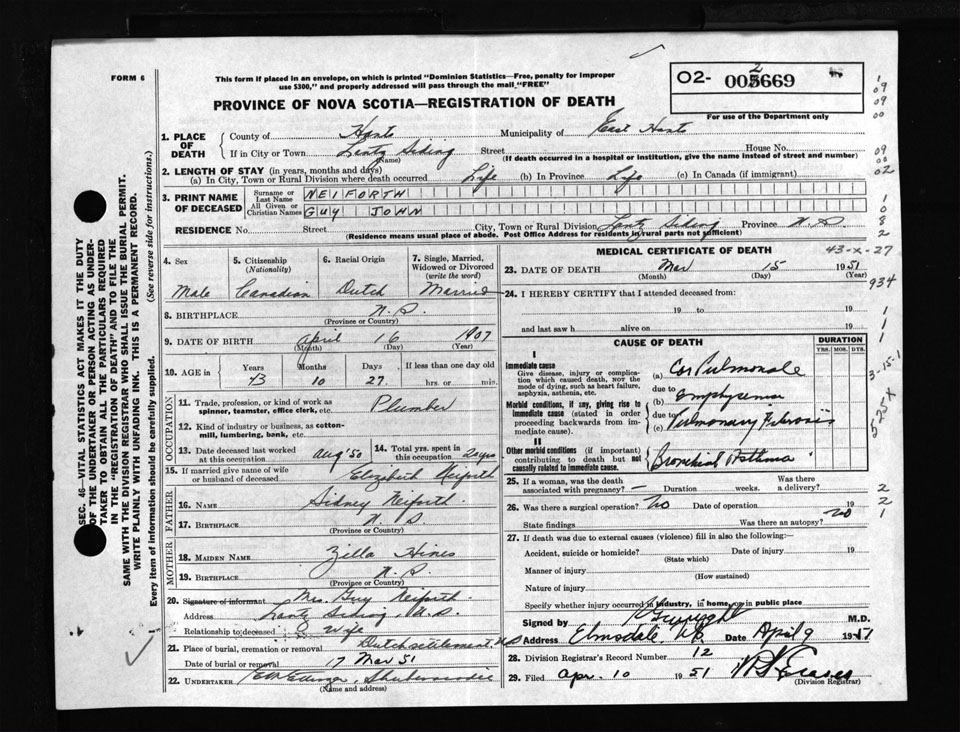 FORM 6
This form if placed in an envelope, on which is printed "Dominion Statistics—Free, penalty for improper
use $300," and properly addressed will pass through the mail "FREE"
O2- 005669
2
PROVINCE OF NOVA SCOTIA—REGISTRATION OF DEATH
For use of the Department only
1. PLACE OF DEATH
County of Hants Municipality of East Hants
If in City or Town Lantz Siding Street House No.
(Name) (If death occurred in a hospital or institution, give the name instead of street and number)
2. LENGTH OF STAY (in years, months and days)
(a) In City, Town or Rural Division where death occurred Life (b) In Province Life (c) In Canada (if immigrant)
3. PRINT NAME OF DECEASED
Surname or Last Name NEIFORTH
All Given or Christian Names GUY JOHN
RESIDENCE No. Street City, Town or Rural Division Lantz Siding Province N.S.
(Residence means usual place of abode. Post Office Address for residents in rural parts not sufficient)
4. Sex Male
5. Citizenship (Nationality) Canadian
6. Racial Origin Dutch
7. Single, Married, Widowed or Divorced (write the word) Married
8. BIRTHPLACE N.S.
(Province or Country)
9. DATE OF BIRTH April 16 1907
(Month) (Day) (Year)
10. AGE in Years Months Days If less than one day old
43 10 27 hrs. or min.
OCCUPATION
11. Trade, profession, or kind of work as spinner, teamster, office clerk, etc. Plumber
12. Kind of industry or business, as cotton-mill, lumbering, bank, etc.
13. Date deceased last worked at this occupation Aug '50
14. Total yrs. spent in this occupation 20 yrs
15. If married give name of wife or husband of deceased Elizabeth Neiforth
FATHER
16. NAME Sidney Neiforth
17. BIRTHPLACE N.S.
(Province or Country)
MOTHER
18. MAIDEN NAME Zilla Hines
19. BIRTHPLACE N.S.
(Province or Country)
20. Signature of informant Mrs. Guy Neiforth
Address Lantz Siding, N.S.
Relationship to deceased Wife
21. Place of burial, cremation or removal Dutch Settlement, N.S
Date of burial or removal 17 Mar 51
22. UNDERTAKER Shubenacadie
(Name and address)
MEDICAL CERTIFICATE OF DEATH
43-X-27
23. DATE OF DEATH Mar 15 1951
(Month) (Day)
934
24. I HEREBY CERTIFY that I attended deceased from:
19 to 19
and last saw h alive on 19
CAUSE OF DEATH
DURATION
YRS. MOS. DYS.
I
Immediate cause
Give disease, injury or complication which caused death, NOT the mode of dying, such as heart failure, asphyxia, asthenia, etc.
(a) Cor Pulmonale
due to
Morbid conditions, if any, giving rise to immediate cause (stated in order proceeding backwards from immediate cause).
(b) Emphysema
due to
(c) Pulmonary Fibrosis
II
Other morbid conditions (if important) contributing to death but not causally related to immediate cause.
Bronchial Asthma
25. If a woman, was the death associated with pregnancy? — Duration weeks. Was there a delivery?
26. Was there a surgical operation? No Date of operation 19
State findings Was there an autopsy? no
27. If death was due to external causes (violence) fill in also the following:—
Accident, suicide or homicide? Date of injury 19
(State which)
Manner of injury
(How sustained)
Nature of injury
Specify whether injury occurred in industry, in home, or in public place
Signed by M.D.
Address Elmsdale, N.S. Date April 9
28. Division Registrar's Record Number 12
29. Filed Apr. 10 1951
(Division Registrar)
SEC. 46—VITAL STATISTICS ACT MAKES IT THE DUTY
OF THE UNDERTAKER OR PERSON ACTING AS UNDER-
TAKER TO OBTAIN ALL THE PARTICULARS REQUIRED
IN THE "REGISTRATION OF DEATH" AND TO FILE THE
SAME WITH THE DIVISION REGISTRAR WHO SHALL ISSUE THE BURIAL PERMIT.
WRITE PLAINLY WITH UNFADING INK. THIS IS A PERMANENT RECORD.
Every item of information should be carefully supplied. (See reverse side for instructions.)